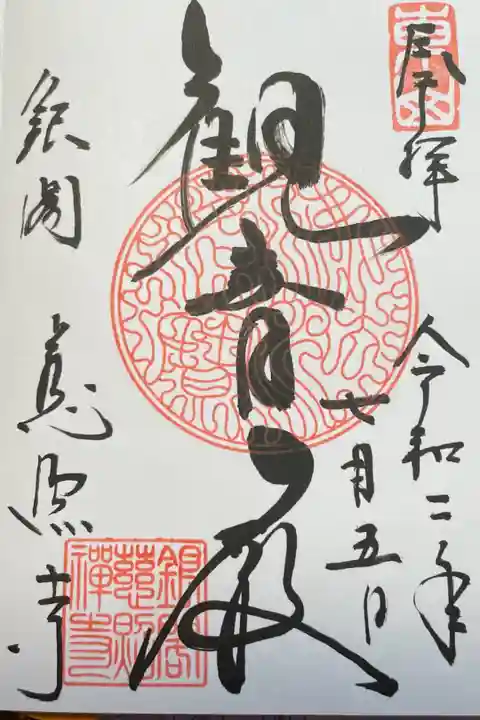 奉拝
令和二年
七月五日
観音殿
銀閣 慈照寺
東山
銀閣
慈照
禅寺